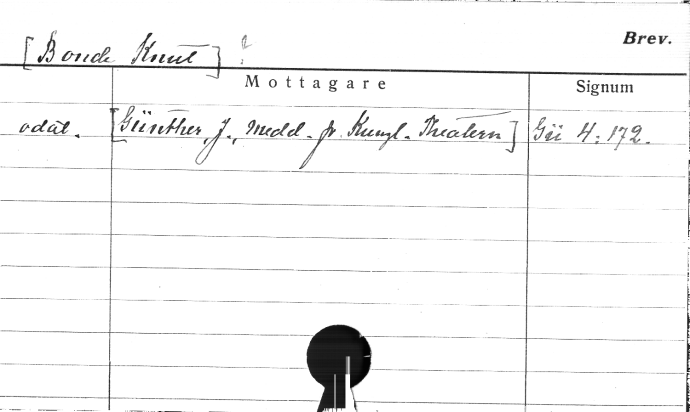 Brev.
[Bonde Knut] ?
Mottagare Signum
odat. [Günther, J., medd. fr. Kungl. Theatern] Gü 4:172.